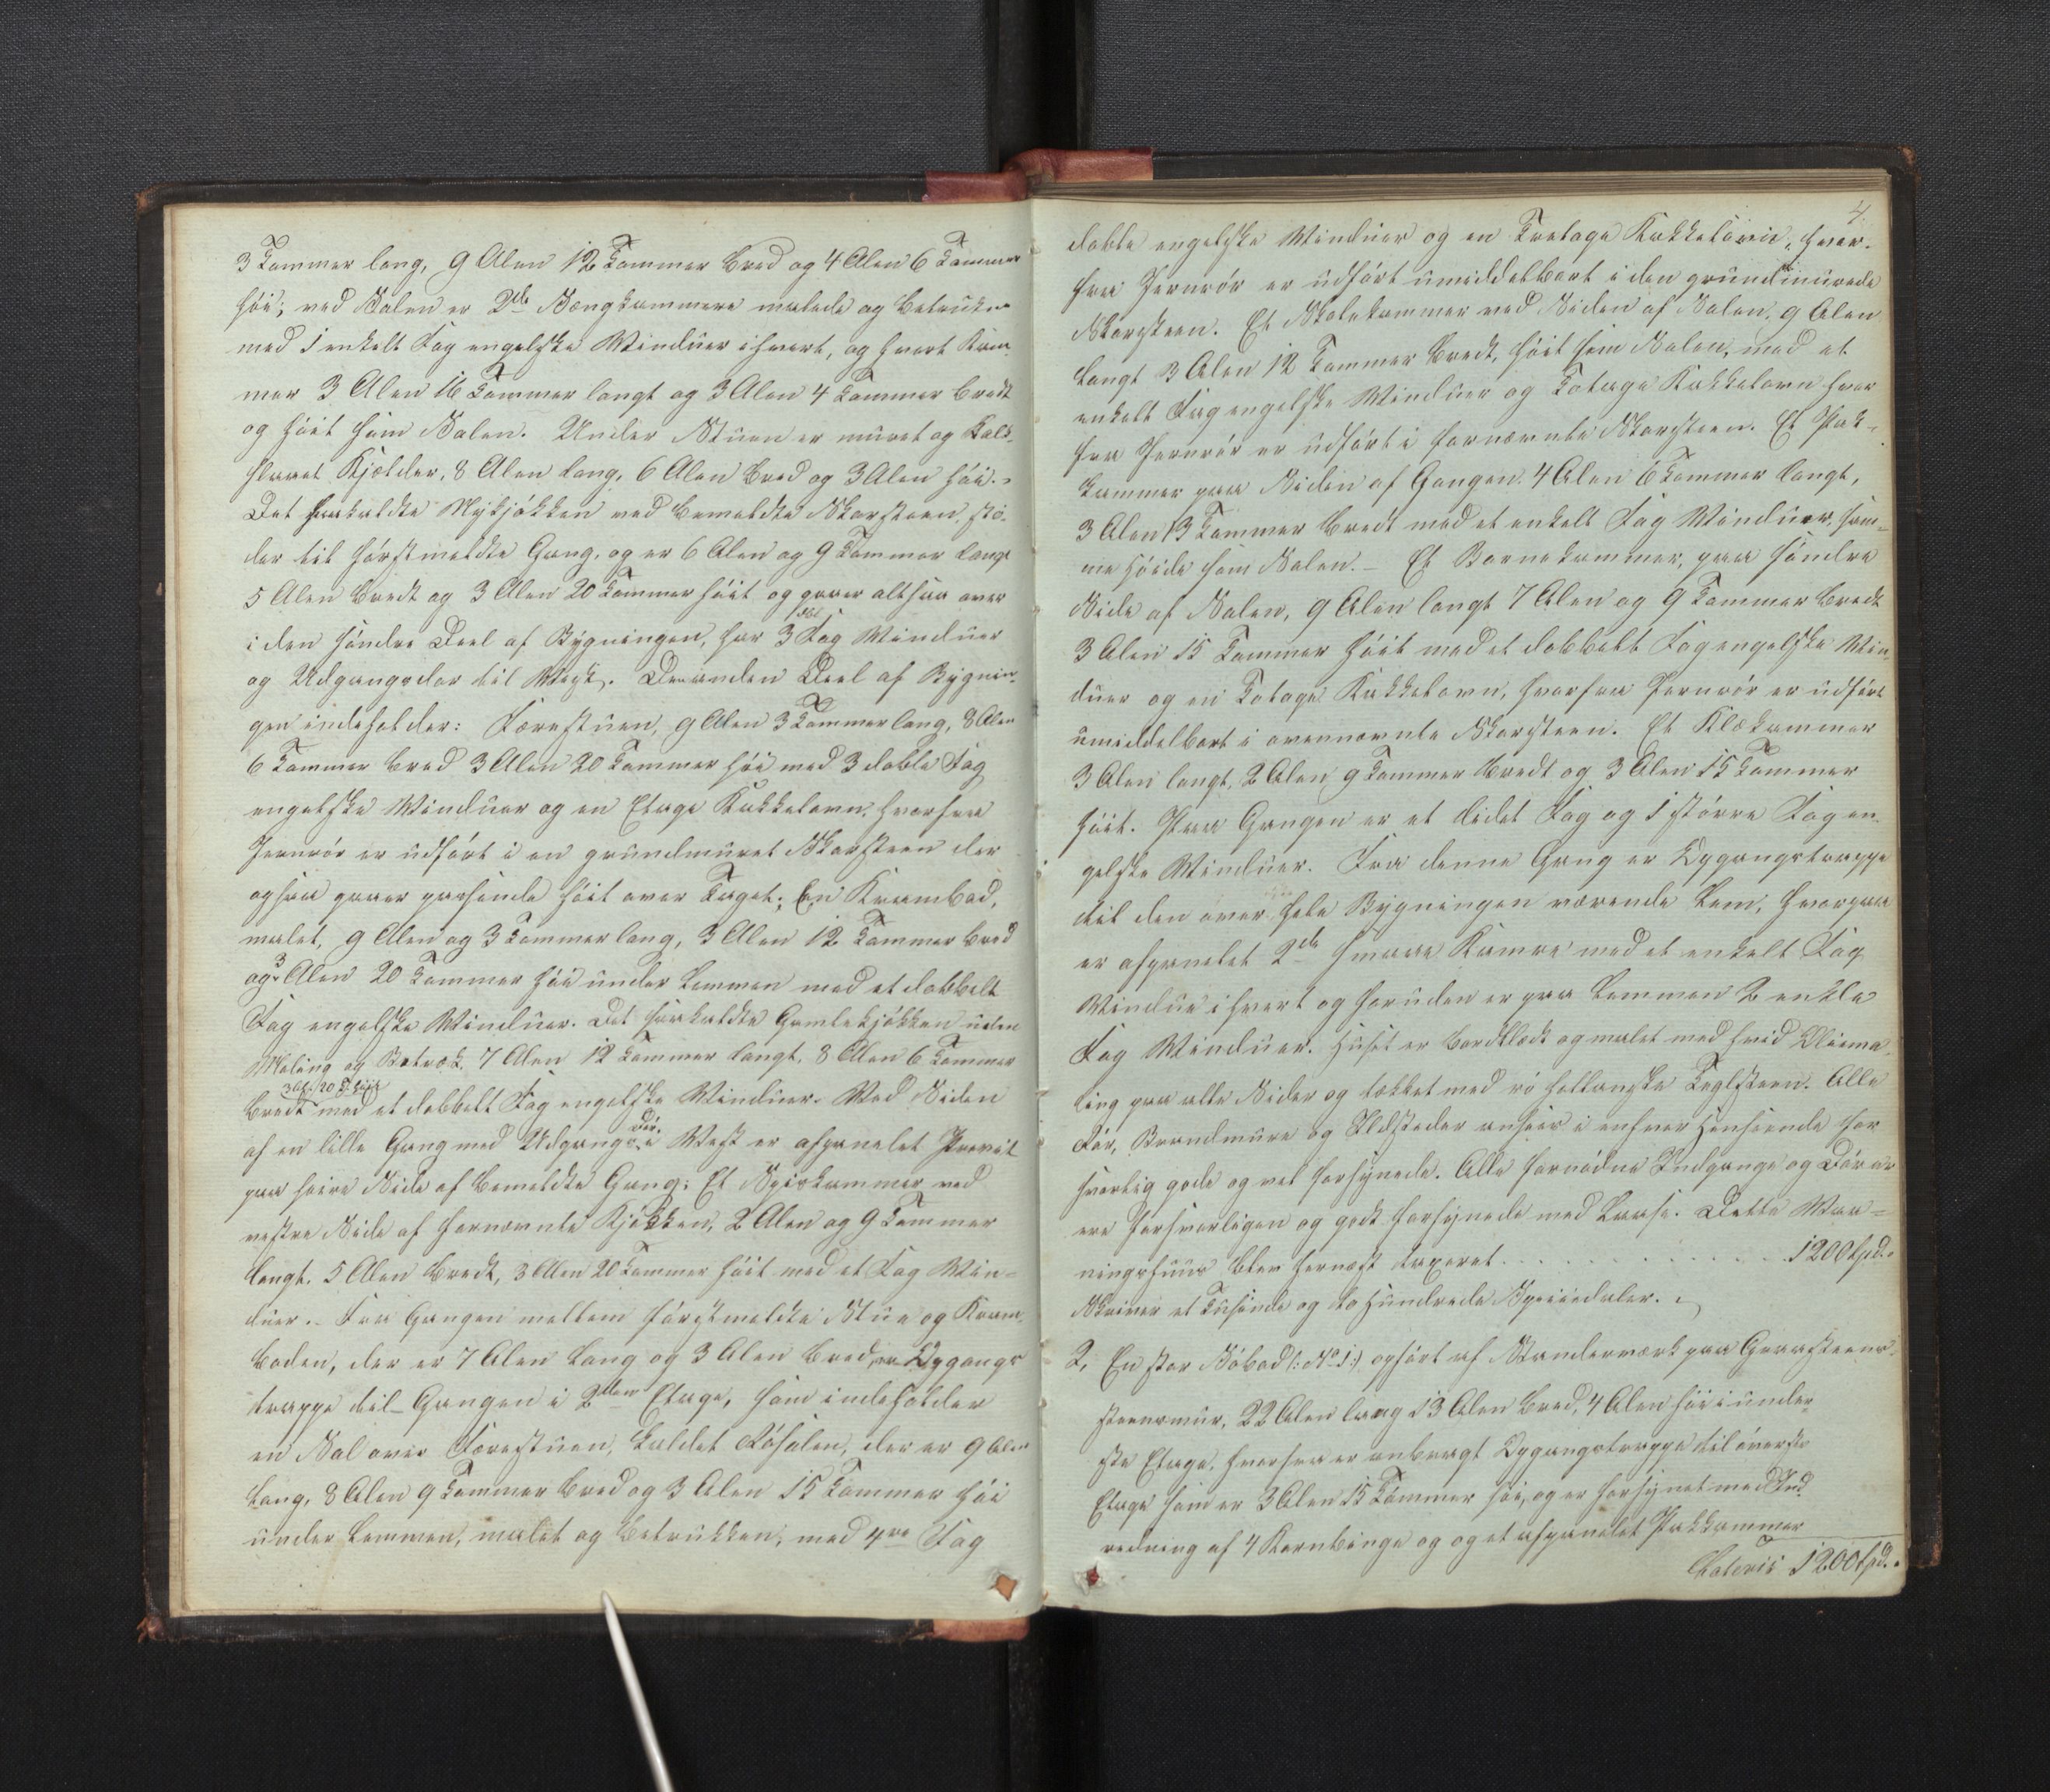 3 Tommer lang, 9 Alen 12 Tommer bred og 4 Alen 6 Tommer
høi; ved Salen er 2de Sængkammere malede og betrukne
med 1 enkelt Fag engelske Vinduer i hvert, og hvert Kam-
mer 3 Alen 16 Tommer langt og 3 Alen 4 Tommer bredt
og høit som Salen. Under Stuen er muret og kalk-
slaaet Kjælder, 8 Alen lang, 6 Alen bred og 3 Alen høi.
Det saakaldte Nykjøkken ved bemeldte Skorsteen, stø-
der til førstmeldte Gang, og er 6 Alen og 9 Tommer langt
5 Alen bredt og 3 Alen 20 Tommer høit og gaaer altsaa over
i den søndre Deel af Bygningen, har 3 Fag Vinduer
og Udgangsdør til Vest. Den anden Deel af Bygnin-
gen indeholder: Forestuen, 9 Alen 3 Tommer lang, 8 Alen
6 Tommer bred 3 Alen 20 Tommer høi med 3 doble Fag
engelske Vinduer og en Etage Kakkelovn, hvorfra
Jernrør er udført i en grundmuret Skorsteen der
ogsaa gaaer passende høit over Taget; En Krambod,
malet, 9 Alen og 3 Tommer lang, 3 Alen 12 Tommer bred
og 3 Alen 20 Tommer høi under Lemmen med et dobbelt
Fag engelske Vinduer. Det saakaldte Gamlekjøkken uden
Maling og Betræk, 7 Alen 12 Tommer langt, 8 Alen 6 Tommer
3 Al. 20 T. høit
bredt med et dobbelt Fag engelske Vinduer. Ved Siden
Dør
af en lille Gang med Udgangs i Vest er afpanelet Privet
paa høire Side af bemeldte Gang; Et Spiskammer ved
vestre Side af fornævnte Kjøkken, 2 Alen og 9 Tommer
langt, 5 Alen bredt, 3 Alen 20 Tommer høit med et Fag Vin-
duer. Fra Gangen mellem førstmeldte Stue og Kram-
boden, der er 7 Alen lang og 3 Alen bred, er Opgangs
trappe til Gangen i 2den Etage, som indeholder
en Sal over Forestuen, kaldet Røsalen, der er 9 Alen
lang, 8 Alen 9 Tommer bred og 3 Alen 15 Tommer høi
under Lemmen, malet og betrukken, med 4re Fag
4.
doble engelske Vinduer og en Toetage Kakkelovn, hvor-
fra Jernrør er udført umiddelbart i den grundmurede
Skorsteen. Et Skolekammer ved Siden af Salen, 9 Alen
langt 3 Alen 12 Tommer bredt, høit som Salen, med et
enkelt Fag engelske Vinduer og Toetage Kakkelovn hvor
fra Jernrør er udført i fornævnte Skorsteen. Et Pak-
kammer paa Siden af Gangen 4 Alen 6 Tommer langt,
3 Alen 3 Tommer bredt med et enkelt Fag Vinduer, sam-
me Høide som Salen. – Et Barnekammer, paa søndre
Side af Salen, 9 Alen langt 7 Alen og 9 Tommer bredt
3 Alen 15 Tommer høit med et dobbelt Fag engelske Vin-
duer og en Toetage Kakkelovn, hvorfra Jernrør er udført
umiddelbart i ovennævnte Skorsteen. Et Klækammer
3 Alen langt, 2 Alen 9 Tommer bredt og 3 Alen 15 Tommer
høit. Paa Gangen er et lidet Fag og 1 større Fag en-
gelske Vinduer. Fra denne Gang er Opgangstrappe
til den over hele Bygningen værende Lem, hvorpaa
er afpanelet 2de smaae Kamre med et enkelt Fag
Vindue i hvert og foruden er paa Lemmen 2 enkle
Fag Vinduer. Huset er bordklædt og malet med hvid Oliema-
ling paa alle Sider og tækket med rø hollandske Teglsteen. Alle
Rør, Brandmure og Ildsteder ansees i enhver Henseende for
svarlig gode og vel forsynede. Alle fornødne Indgange og Døre
ere forsvarligen og godt forsynede med Laase. Dette Vaa-
ningshuus blev hernæst taxeret . . . . . . . . . 1200 Spd.
Skriver et Tusinde og to Hundrede Speciedaler.
2, En stor Søbod (: No 1 :) opført af Standerværk paa Graasteens-
steensmuur, 22 Alen lang 13 Alen bred, 4 Alen høi i under-
ste Etage, hvorfra er anbragt Opgangstrappe til øverste
Etage som er 3 Alen 15 Tommer høi, og er forsynet med Ind-
redning af 4 Kornbinge og og et afpanelet Pakkammer
Lateris 1200 Spd.